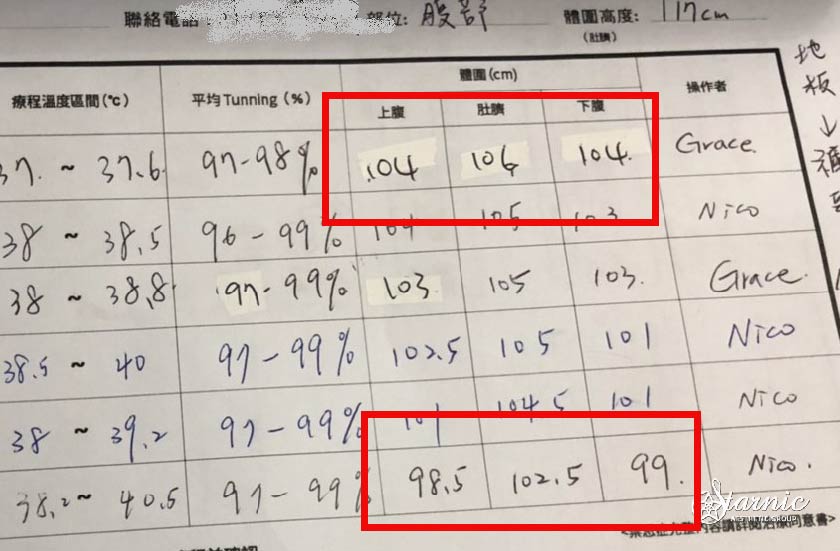 聯絡電話： 部位： 腹部 體圍高度： 117cm
(肚臍)
療程溫度區間(℃) 平均Tunning(%) 體圍(cm) 操作者
上腹 肚臍 下腹
37. ~ 37.6 97-98% 104 106 104. Grace.
38 ~ 38.5 96-99% 104 105 103 Nico
38 ~ 38.8 97-99% 103. 105 103. Grace.
38.5 ~ 40 97-99% 102.5 105 101 Nico
38 ~ 39.2 97-99% 101 104.5 101 Nico
38.2 ~ 40.5 97-99% 98.5 102.5 99. Nico.
地板↓
Starnic
AESTHETIC GROUP
完整內容請詳閱治療同意書>